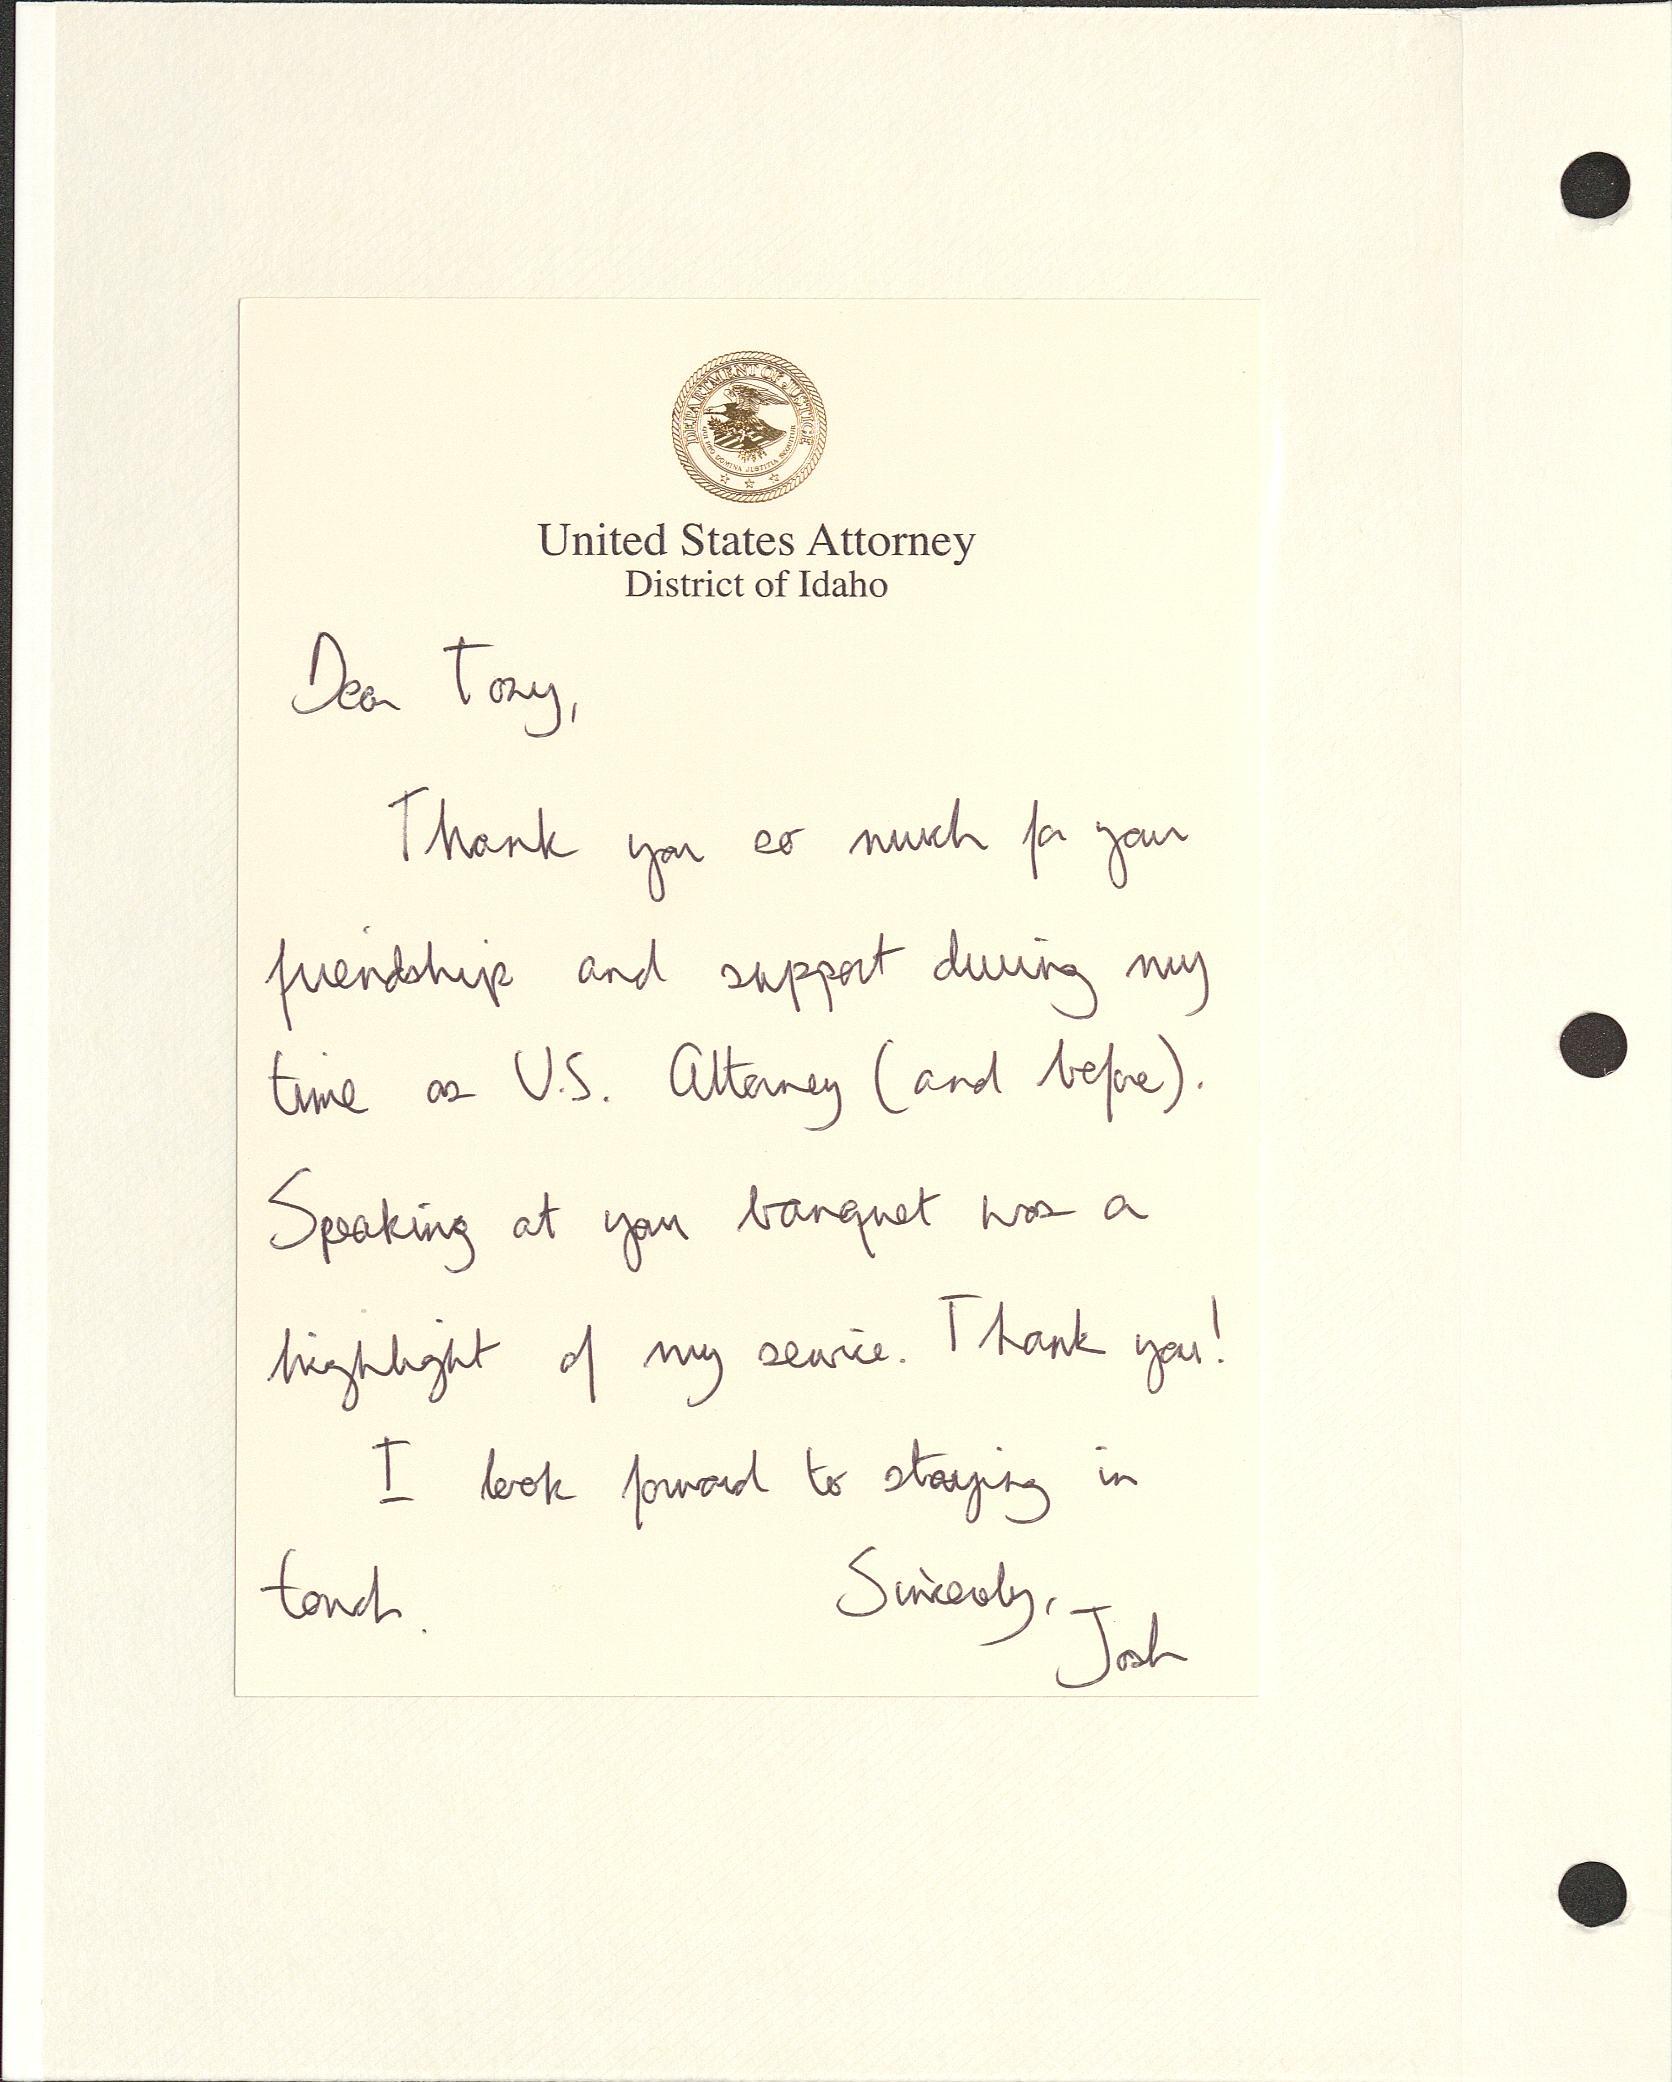 DEPARTMENT OF JUSTICE
QUI PRO DOMINA JUSTITIA SEQUITUR
United States Attorney
District of Idaho
Dear Tony,
Thank you so much for your
friendship and support during my
time as U.S. Attorney (and before).
Speaking at your banquet was a
highlight of my service. Thank you!
I look forward to staying in
touch.
Sincerely,
Josh